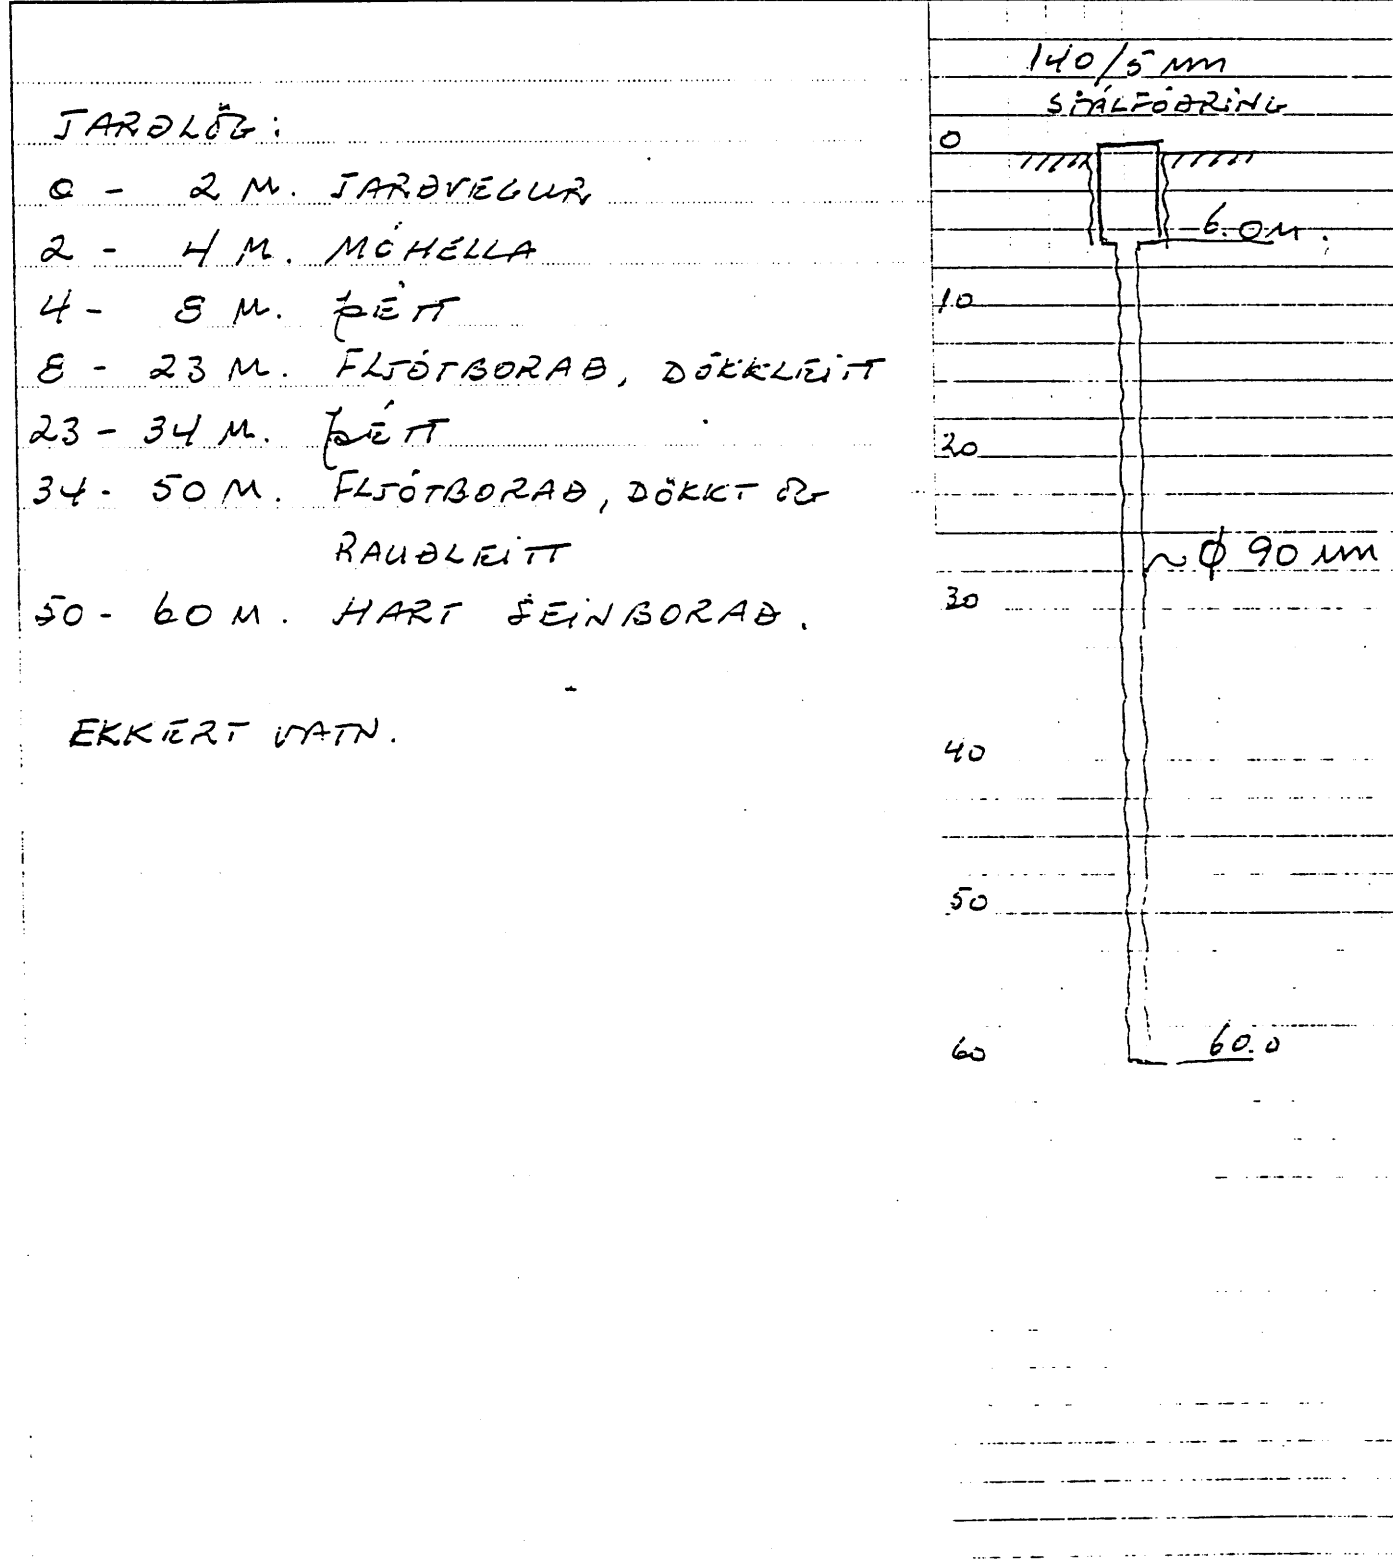 JARÐLÖG:
0 - 2 M. JARÐVEGUR
2 - 4 M. MÓHELLA
4 - 8 M. ÞÉTT
8 - 23 M. FLJÓTBORAÐ, DÖKKLEITT
23 - 34 M. ÞÉTT
34 - 50 M. FLJÓTBORAÐ, DÖKKT OG
RAUÐLEITT
50 - 60 M. HART SEINBORAÐ.
EKKERT VATN.
140/5 mm
STÁLFÓÐRING
0
6.0 M.
10
20
~ϕ 90 mm
30
40
50
60
60.0